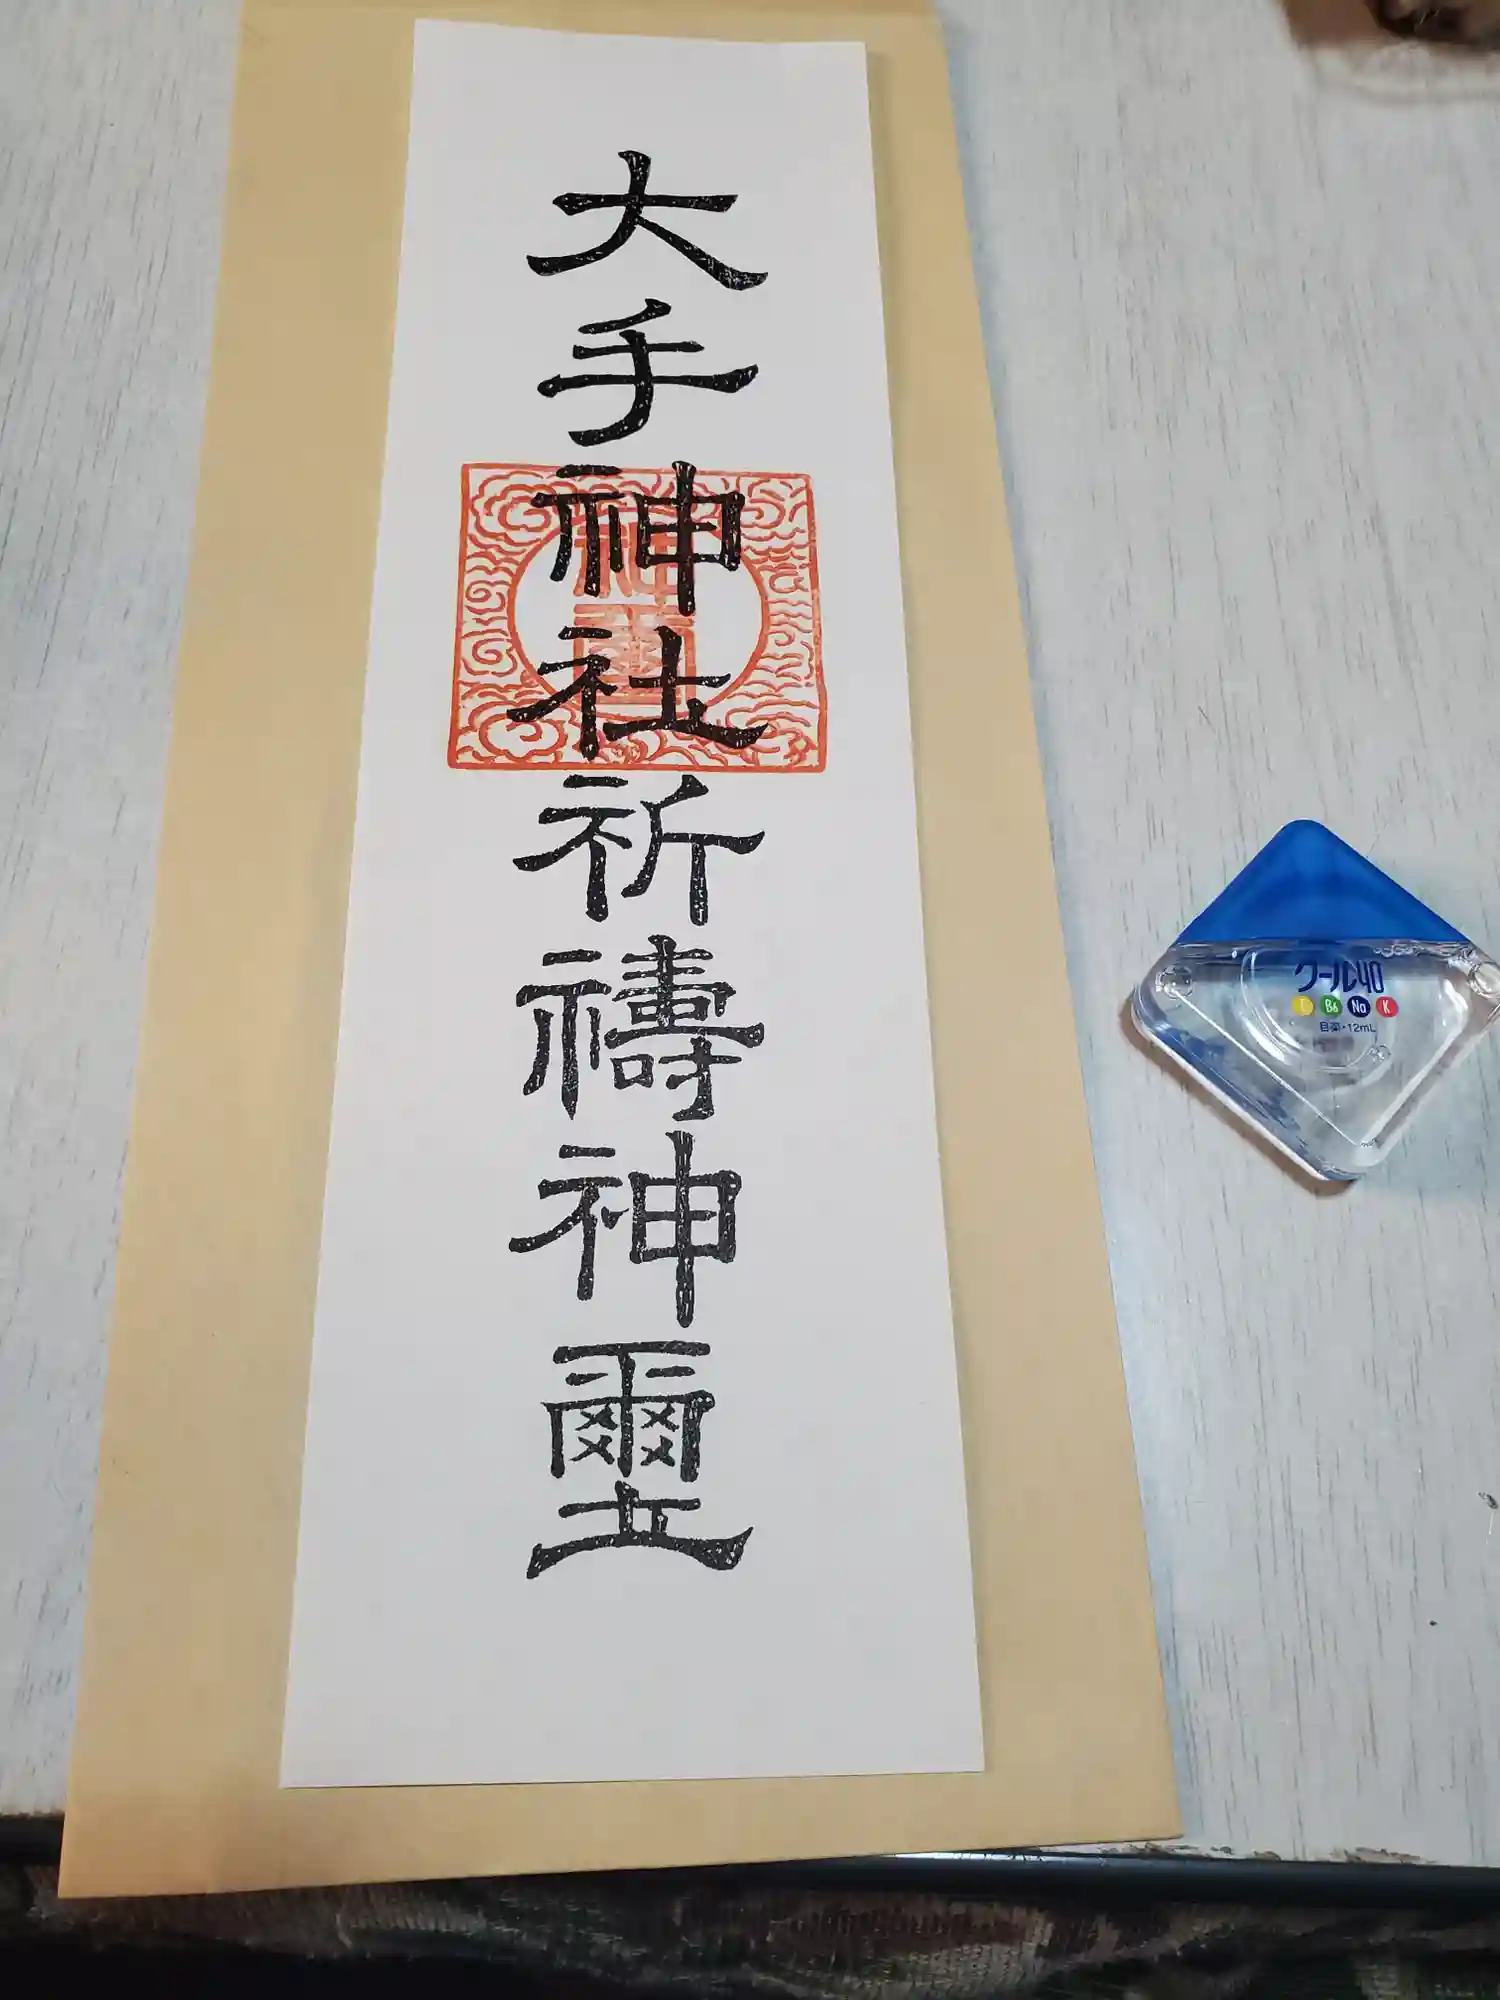 大手神社祈禱神璽
神璽
クール40
E B6 Na K
目薬・12mL